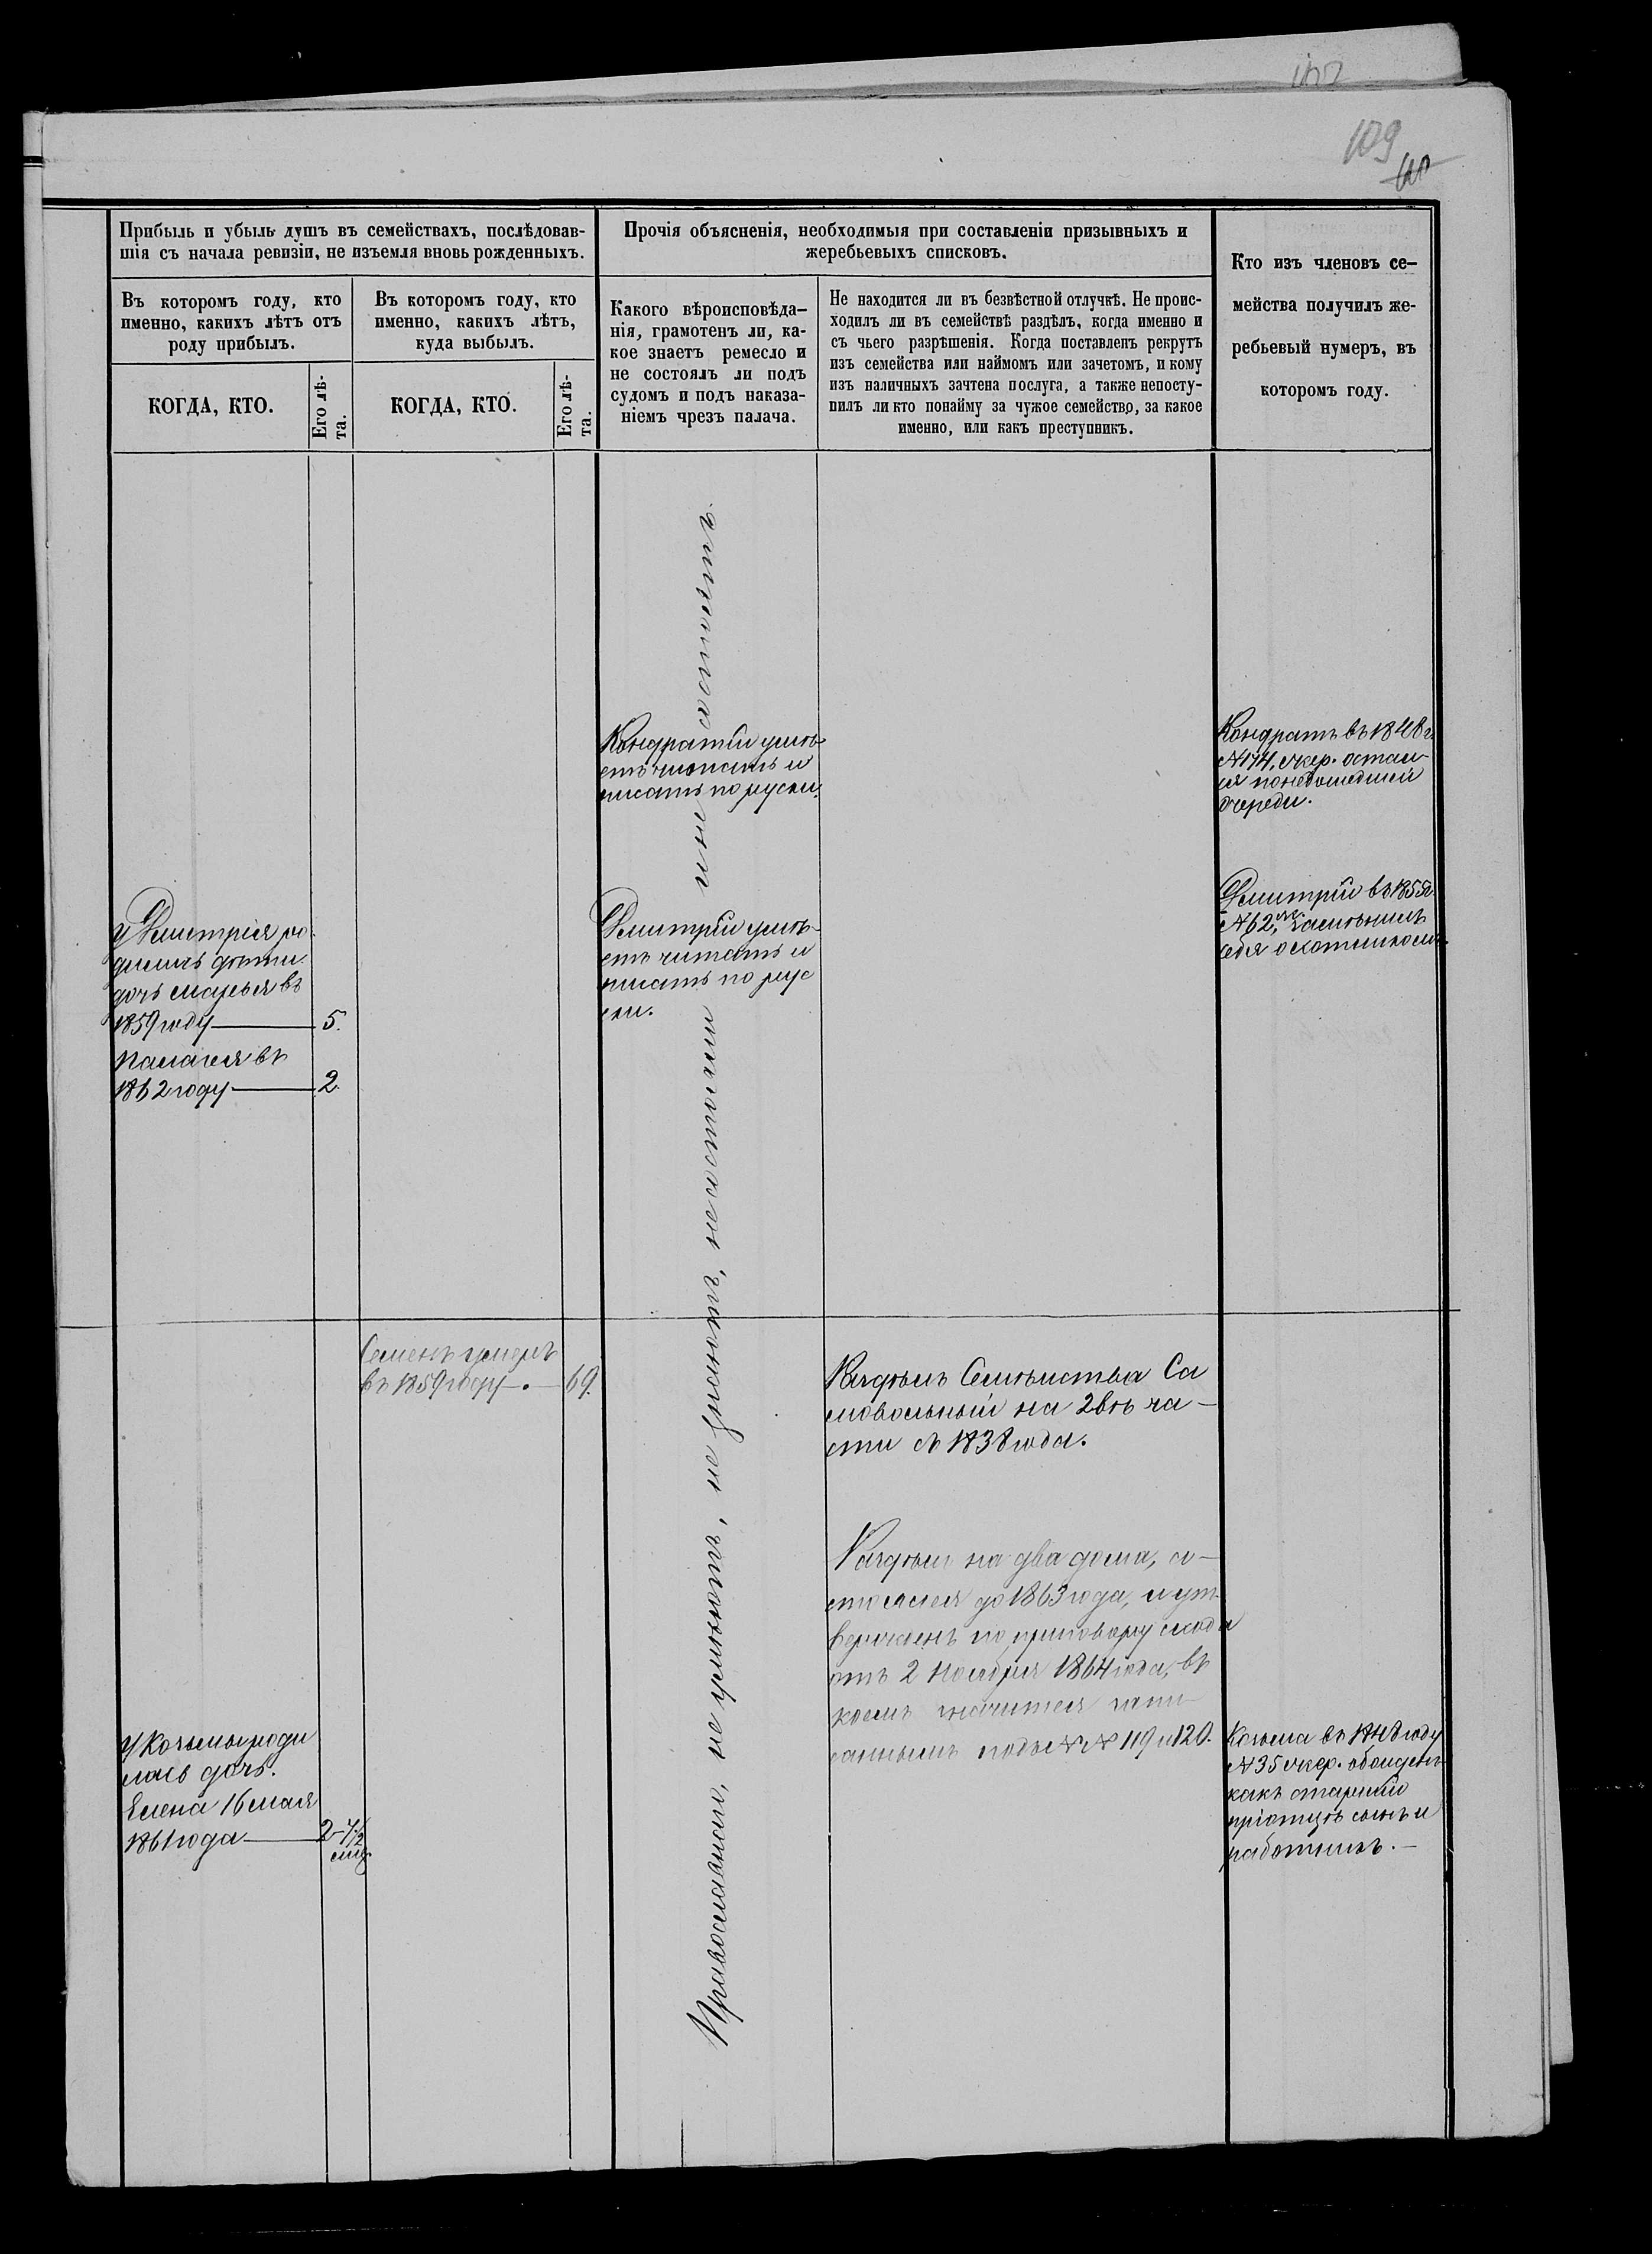 109
Прибыль и убыль душъ въ семействахъ, послѣдовав-
шія съ начала ревизіи, не изъемля вновь рожденныхъ.
Въ которомъ году, кто
именно, какихъ лѣтъ отъ
роду прибылъ.
КОГДА, КТО.
Его лѣ-
та.
Въ которомъ году, кто
именно, какихъ лѣтъ,
куда выбылъ.
КОГДА, КТО.
Его лѣ-
та.
Прочія объясненія, необходимыя при составленіи призывныхъ и
жеребьевыхъ списковъ.
Какого вѣроисповѣда-
нія, грамотенъ ли, ка-
кое знаетъ ремесло и
не состоялъ ли подъ
судомъ и подъ наказа-
ніемъ чрезъ палача.
Не находится ли въ безвѣстной отлучкѣ. Не проис-
ходилъ ли въ семействѣ раздѣлъ, когда именно и
съ чьего разрѣшенія. Когда поставленъ рекрутъ
изъ семейства или наймомъ или зачетомъ, и кому
изъ наличныхъ зачтена послуга, а также непосту-
пилъ ли кто понайму за чужое семейство, за какое
именно, или какъ преступникъ.
Кто изъ членовъ се-
мейства получилъ же-
ребьевый нумеръ, въ
которомъ году.
Кондратій умѣ-
етъ читать и
писать по руски.
Кондратъ въ 1848 г.
№174, жер. остал-
ся понедошедшей
очереди.
У Дмитрія ро-
дились дѣти
дочь Марья въ
1859 году — 5.
Палагея въ
1862 году — 2.
Дмитрій умѣ-
етъ читать и
писать по рус
ки.
Дмитрій въ 1855 г.
№62, замѣнилъ
себя охотникомъ.
Православнаго, не умѣютъ, не знаютъ, не состояли и не состоятъ.
Семенъ умеръ
въ 1859 году — 69.
Раздѣлъ Семѣйства Са
мовольный на 2вѣ ча-
сти съ 1838 года.
Раздѣлъ на два дома, со-
стоялся до 1863 года, и ут-
вержденъ по приговору схода
отъ 2 Ноября 1864 года, въ
коемъ значится запи-
саннымъ подъ №№ 119 и 120.
У Козьмы роди
лась дочь.
Елена 16 мая
1861 года — 2-7½
мѣс.
Козьма въ 1848 году
№35 жер. обойденъ
какъ старшій
приотцѣ сынъ и
работникъ.—